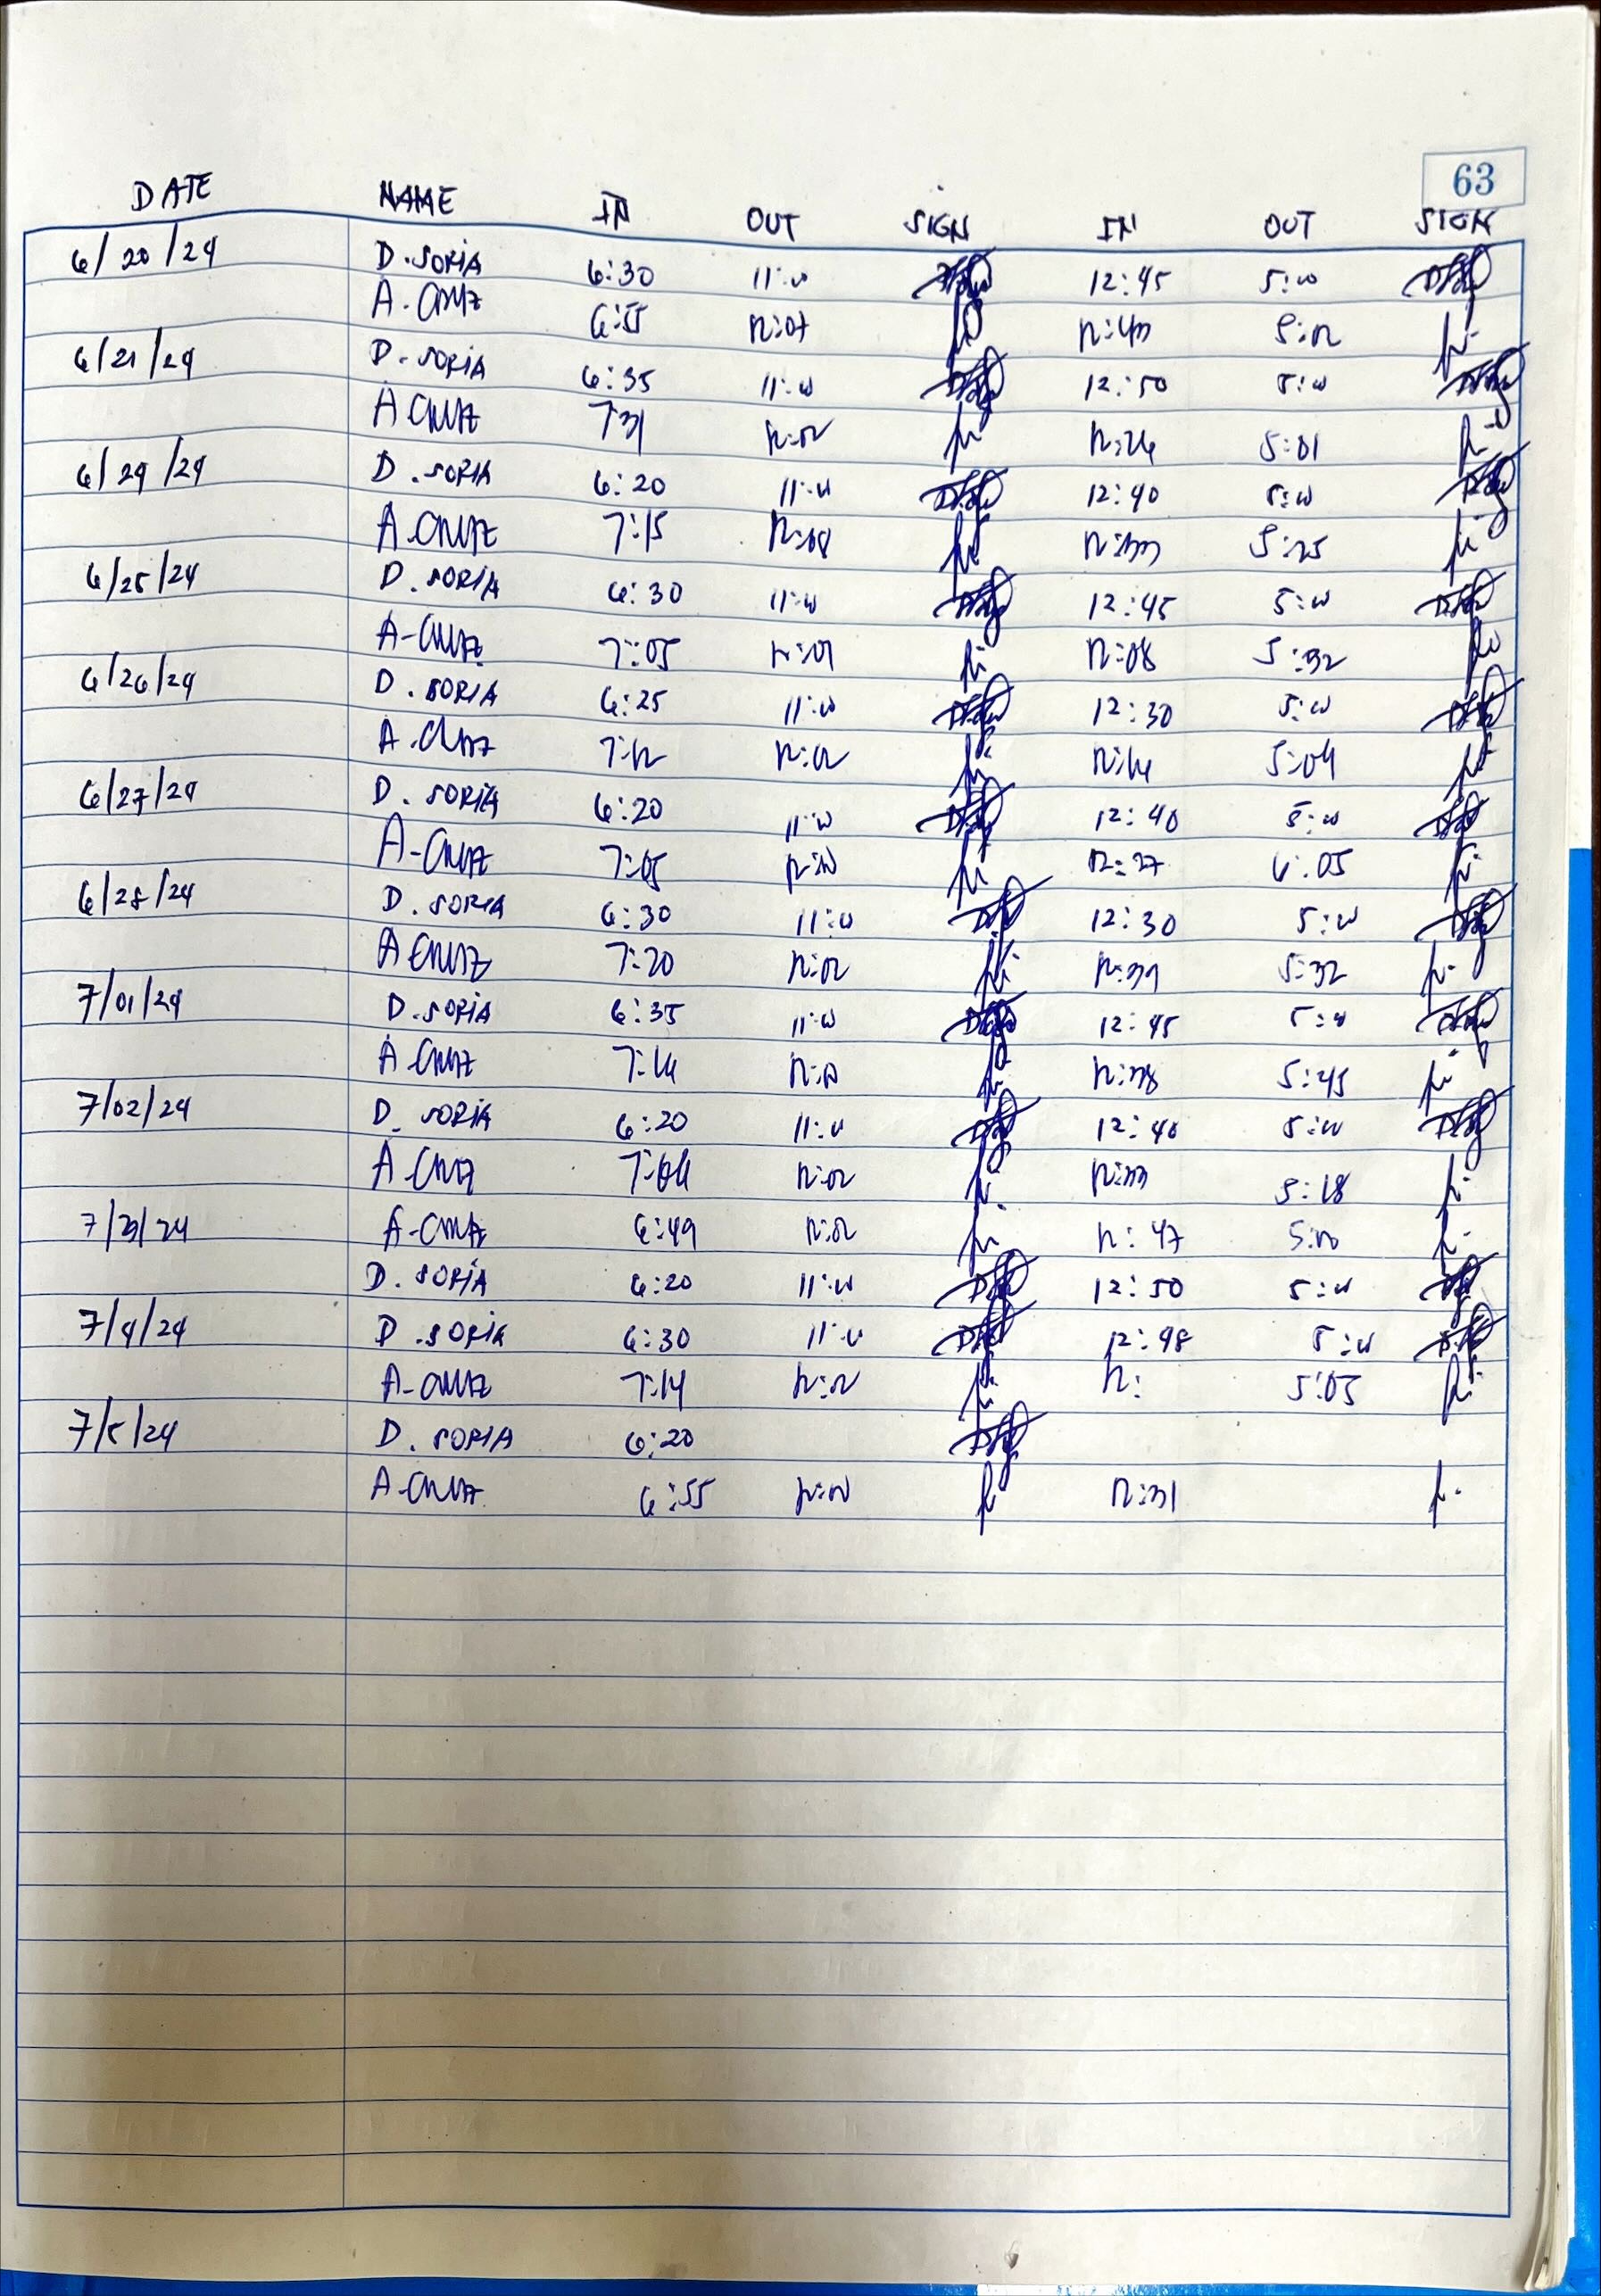 63
DATE NAME IN OUT SIGN IN OUT SIGN
6/20/24 D. SORIA 6:30 11:00 12:45 5:00
A. CRUZ 6:55 12:07 5:02
6/21/24 D. SORIA 6:35 11:00 12:50 5:00
A CRUZ 7:31 12:02 12:26 5:01
6/24/24 D. SORIA 6:20 11:00 12:40 5:00
A. CRUZ 7:15 12:08 12:33 5:25
6/25/24 D. SORIA 6:30 11:00 12:45 5:00
A-CRUZ 7:05 12:01 12:08 5:32
6/26/24 D. SORIA 6:25 11:00 12:30 5:00
A. CRUZ 7:12 12:02 5:04
6/27/24 D. SORIA 6:20 11:00 12:40 5:00
A-CRUZ 7:05 12:27 6:05
6/28/24 D. SORIA 6:30 11:00 12:30 5:00
A CRUZ 7:20 12:02 12:39 5:32
7/01/24 D. SORIA 6:35 11:00 12:45 5:00
A CRUZ 12:38 5:45
7/02/24 D. SORIA 6:20 11:00 12:40 5:00
A CRUZ 12:02 12:33 5:18
7/3/24 A-CRUZ 6:49 12:02 12:47
D. SORIA 6:20 11:00 12:50 5:00
7/4/24 D. SORIA 6:30 11:00 12:48 5:00
A-CRUZ 7:14 12:02 12: 5:05
7/5/24 D. SORIA 6:20
A-CRUZ 6:55 12:31